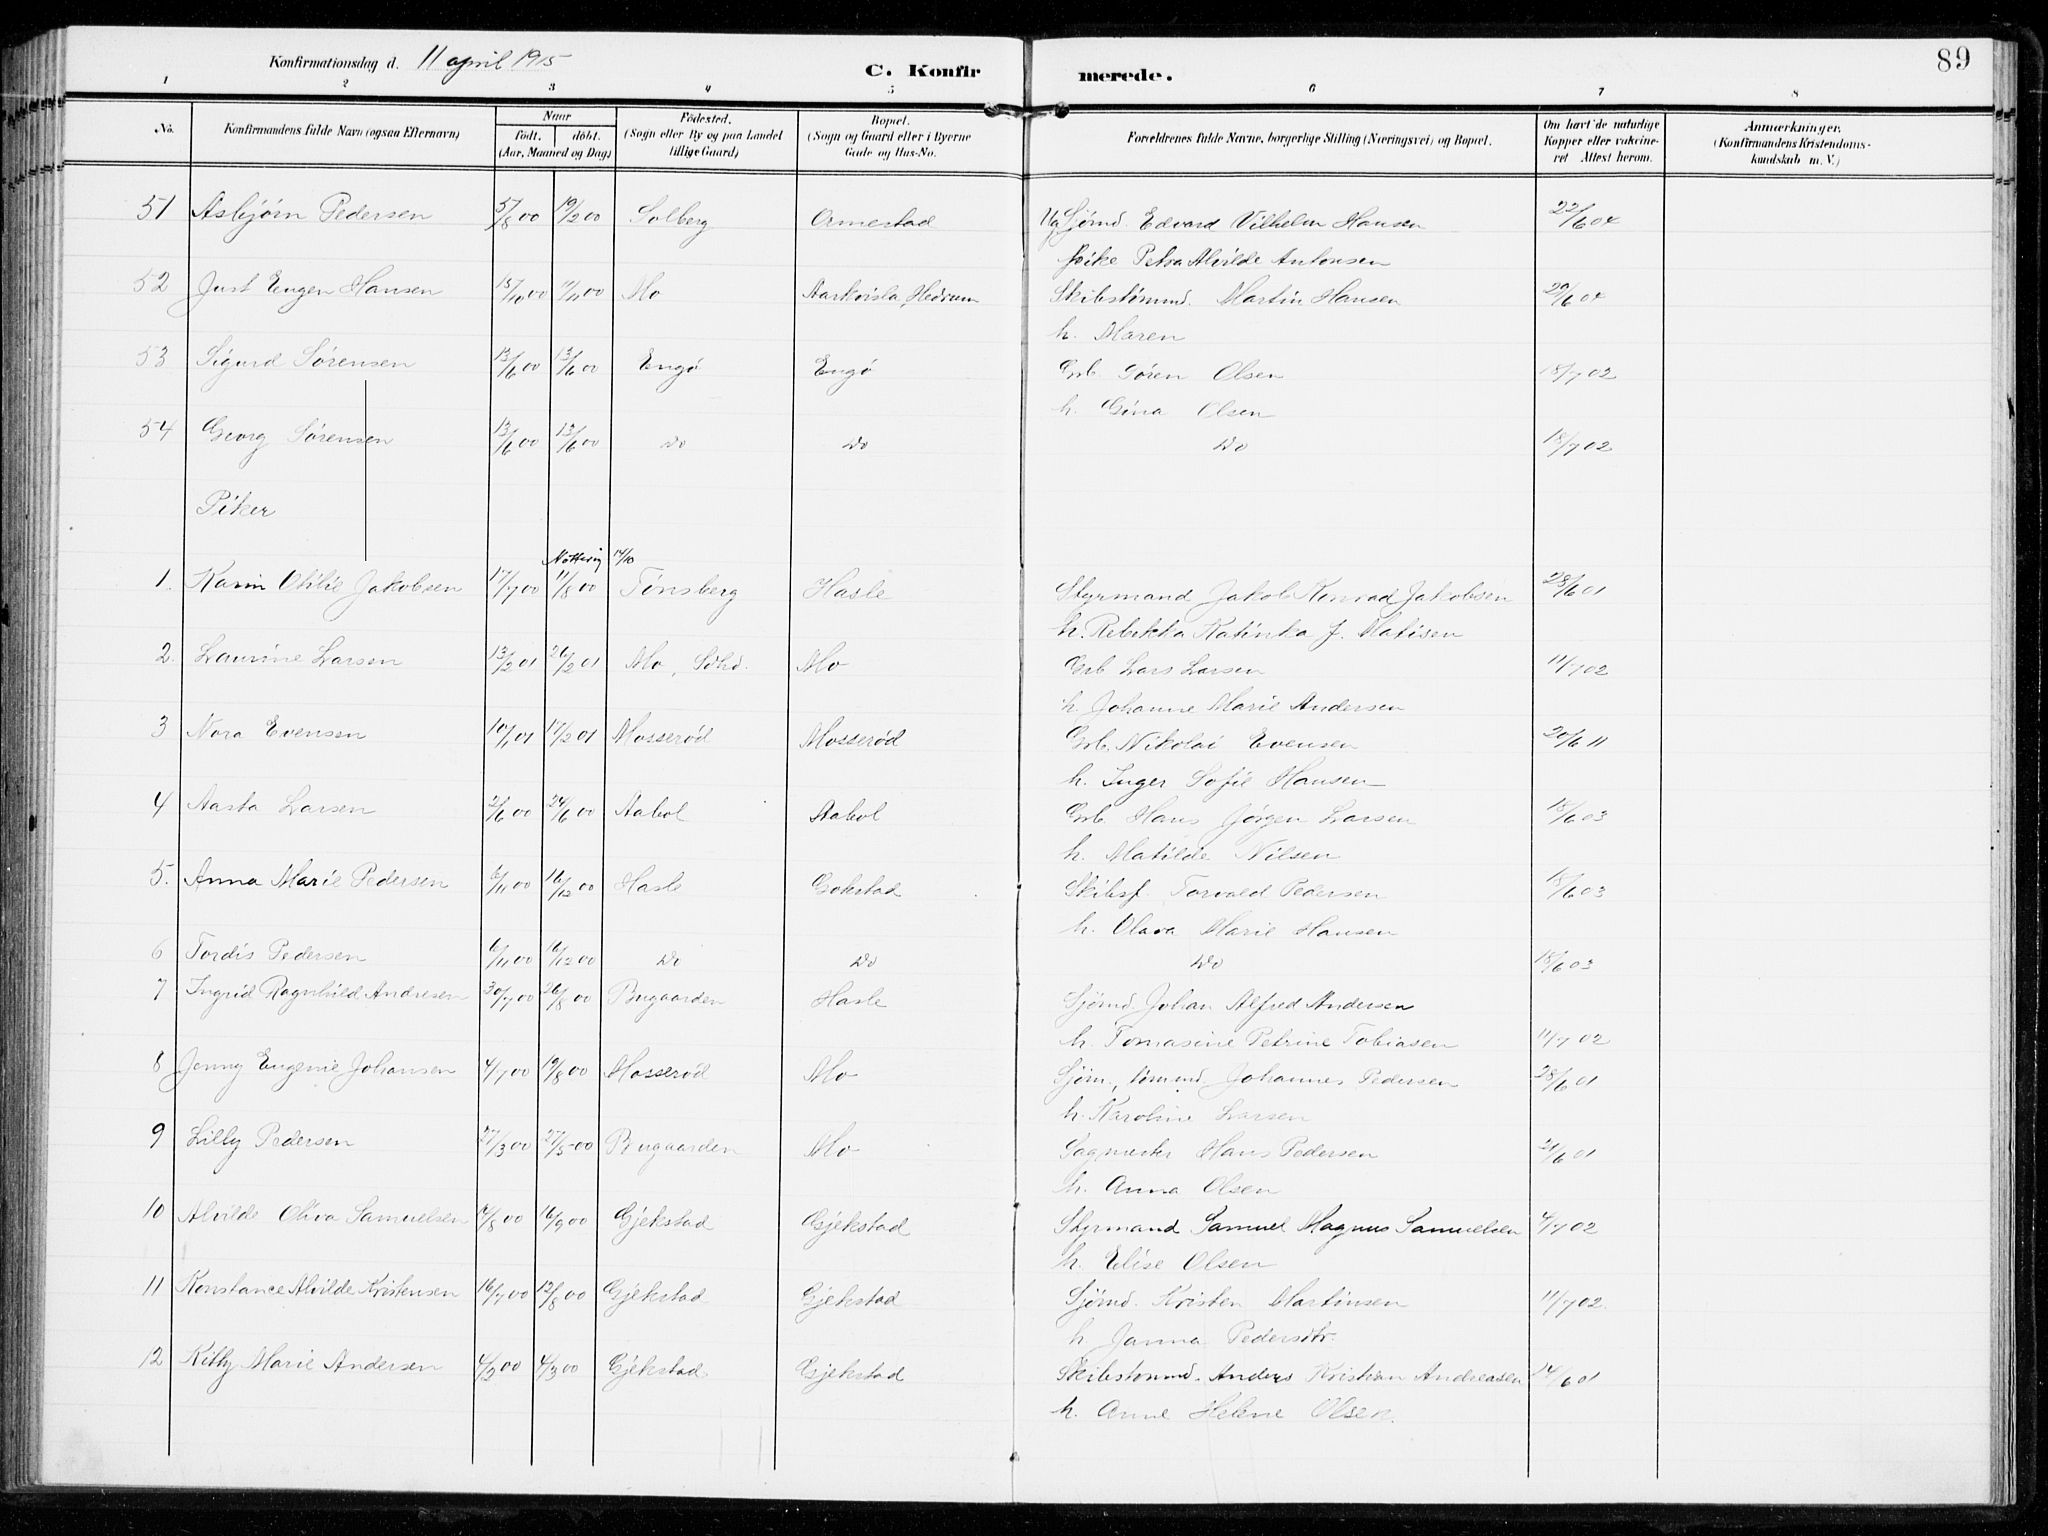 Konfirmationsdag d. 11 april 1915 C. Konfirmerede. 89
1 2 3 4 5 6 7 8
No. Konfirmandens fulde Navn (ogsaa Efternavn) Naar født. døbt. (Aar, Maaned og Dag) Fødested. (Sogn eller By og paa Landet tillige Gaard) Bopæl. (Sogn og Gaard eller i Byerne Gade og Hus-No. Forældrenes fulde Navne, borgerlige Stilling (Næringsvei) og Bopæl. Om havt de naturlige Kopper eller vakcineret Attest herom. Anmærkninger. (Konfirmandens Kristendomskundskab m. V.)
51 Asbjørn Pedersen 5/8 00 19/2 00 Solberg Ormestad Ug Sjømd. Edvard Vilhelm Hansen 22/6 04
Pike Petra Alvilde Antonsen
52 Just Eugen Hansen 15/10 00 11/11 00 Mo Hedrum Skibstømmd. Martin Hansen 29/6 04
h. Maren
53 Sigurd Sørensen 13/6 00 13/6 00 Engø Engø Grb. Søren Olsen 18/7 02
h. Gina Olsen
54 Georg Sørensen 13/6 00 13/6 00 Do Do Do 18/7 02
Piker
Nøtterø 14/10
1. Karin Othilie Jakobsen 17/7 00 11/8 00 Tønsberg Hasle Styrmand Jakob Konrad Jakobsen 28/6 01
h. Rebekka Katinka J. Matisen
2. Laurine Larsen 13/2 01 26/2 01 Mo, Sdhd. Mo Grb Lars Larsen 11/7 02
h. Johanne Marie Andersen
3 Nora Evensen 10/1 01 17/2 01 Mosserød Mosserød Grb. Nikolai Evensen 20/6 11
h. Inger Sofie Hansen
4 Aasta Larsen 2/6 00 24/6 00 Aabol Aabol Grb Hans Jørgen Larsen 18/6 03
h. Matilde Nilsen
5. Anna Marie Pedersen 6/11 00 16/12 00 Hasle Gokstad Skibsf. Torvald Pedersen 18/6 03
h. Olava Marie Hansen
6 Tordis Pedersen 6/11 00 16/12 00 Do Do Do 18/6 03
7 Ingrid Ragnhild Andresen 30/7 00 26/8 00 Bugaarden Hasle Sjømd. Johan Alfred Andersen
h. Tomasine Petrine Tobiasen 11/7 02
8 Jenny Eugenie Johansen 4/7 00 19/8 00 Mosserød Mo Sjøm., tømmd. Johannes Pedersen 28/6 01
h. Karoline Larsen
9 Lilly Pedersen 27/3 00 27/5 00 Bugaarden Mo Sagmester Hans Pedersen 21/6 01
h. Anna Olsen
10 Alvilde Oliva Samuelsen 14/8 00 16/9 00 Gjekstad Gjekstad Styrmand Samuel Magnus Samuelsen 4/7 02
h. Elise Olsen
11 Konstance Alvilde Kristensen 16/7 00 12/8 00 Gjekstad Gjekstad Sjømd. Kristen Martinsen 11/7 02
h Janna Pedersdtr.
12 Kitty Marie Andersen 4/2 00 4/3 00 Gjekstad Gjekstad Skibstømmd. Anders Kristian Andreasen 14/6 01
h. Anne Helene Olsen.